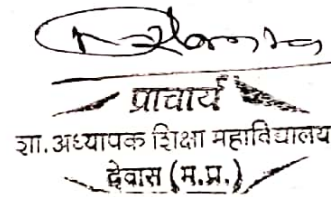 प्राचार्य
शा. अध्यापक शिक्षा महाविद्यालय
देवास (म.प्र.)